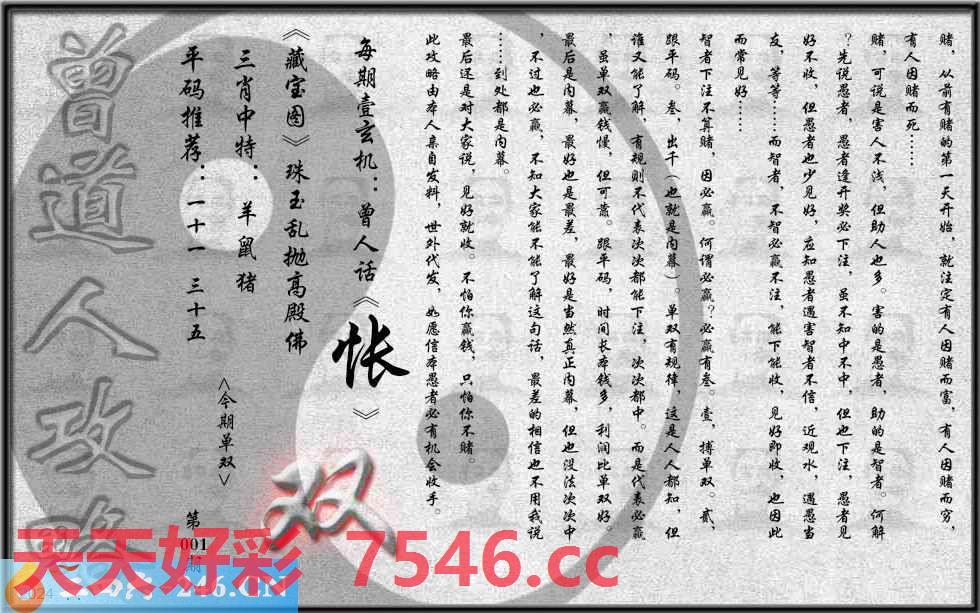 赌，从前有赌的第一天开始，就注定有人因赌而富，有人因赌而穷，
有人因赌而死……
赌，可说是害人不浅，但助人也多。害的是愚者，助的是智者。何解
？先说愚者，愚者逢开奖必下注，虽不知中不中，但也下注，愚者见
好不收，但愚者也少见好，应知愚者遇害智者不信，近观水，遇愚当
友，等等……而智者，不智必赢不注，能下能收，见好即收，也因此
而常见好……
智者下注不算赌，因必赢。何谓必赢？必赢有叁。壹，搏单双。贰，
跟平码。叁，出千（也就是内幕）。单双有规律，这是人人都知，但
谁又能了解，有规则不代表次次都能下注，次次都中。而是代表必赢
，虽单双赢钱慢，但可靠。跟平码，时间长本钱多，利润比单双好。
最后是内幕，最好也是最差，最好是当然真正内幕，但也没法次次中
，不过也必赢，不知大家能不能了解这句话，最差的相信也不用我说
……到处都是内幕。
最后还是对大家说，见好就收。不怕你赢钱，只怕你不赌。
此攻略由本人亲自发料，世外代发，如愿信本愚者必有机会收手。
每期壹玄机：曾人话《怅》
《藏宝图》珠玉乱抛高殿佛
三肖中特：羊鼠猪
平码推荐：一十一 三十五
<今期单双>
双
第
001
期
曾道人攻略
天天好彩 7546.cc
246.CN